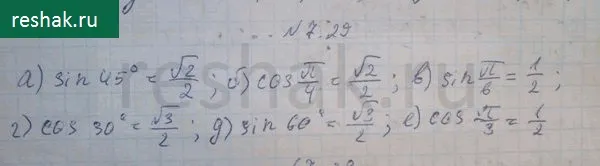 РЕШАК
reshak.ru
№ 7.29
а) sin 45° = √2/2; б) cos π/4 = √2/2; в) sin π/6 = 1/2;
г) cos 30° = √3/2; д) sin 60° = √3/2; е) cos π/3 = 1/2